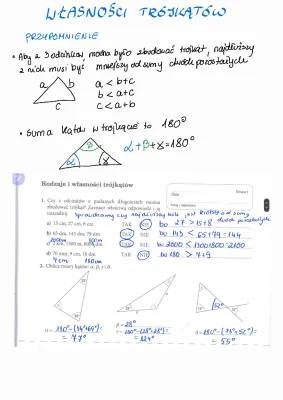 WŁASNOŚCI TRÓJKĄTÓW
PRZYPOMNIENIE
• Aby z 3 odcinków, można było zbudować trójkąt, najdłuższy
z nich musi być mniejszy od sumy dwóch pozostałych
a b c
a < b+c
b < a+c
c < a+b
• Suma kątów w trójkącie to 180°
α β γ
α+β+γ=180°
Rodzaje i własności trójkątów
1. Czy z odcinków o podanych długościach można
zbudować trójkąt? Zaznacz właściwą odpowiedź i ją
uzasadnij. Sprawdzamy czy najdłuższy bok jest krótszy od sumy
dwóch pozostałych
a) 15 cm, 27 cm, 8 cm TAK NIE bo 27 > 15+8
b) 65 dm, 143 dm, 79 dm TAK NIE bo 143 < 65+79=144
TAK NIE bo 2000 < 1300+800=2100
TAK NIE bo 180 > 7+9
2. Oblicz miary kątów: α, β, γ, δ.
β=28°
= 77°
= 124°
= 55°